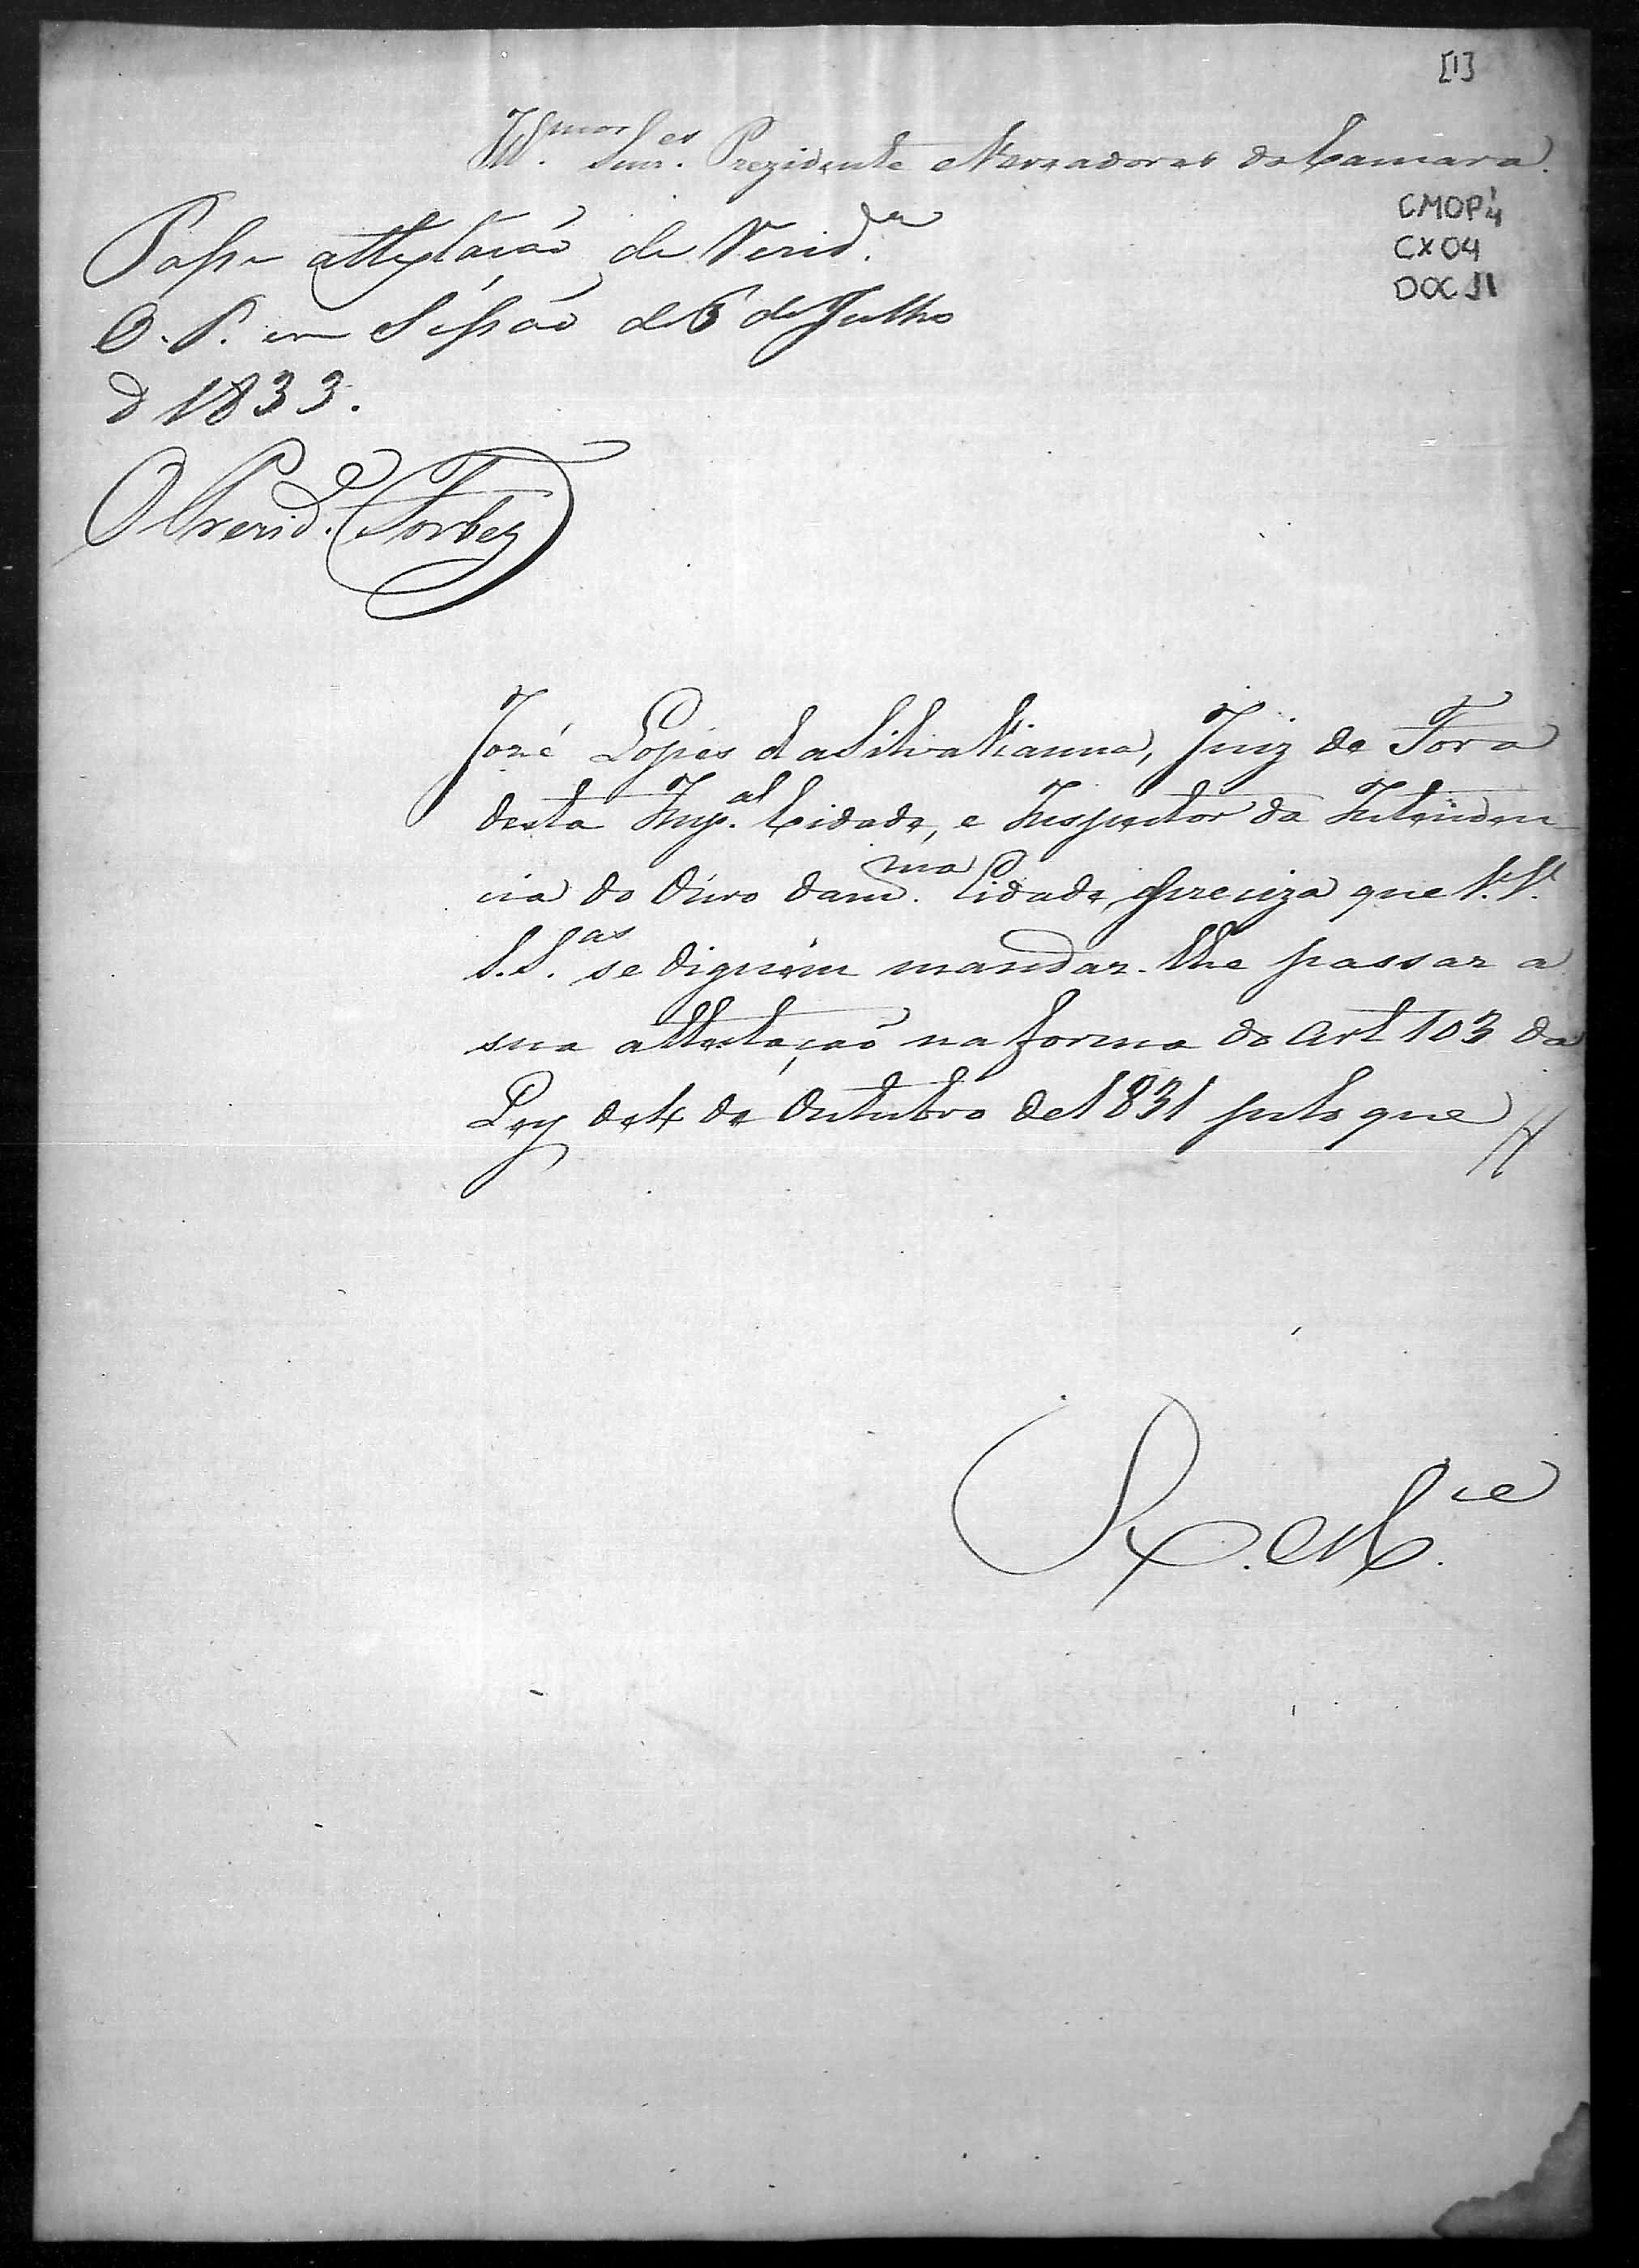 [1]
Ill.mos Snr.es Prezidente e Vereadores da Camara.
CMOP 4
CX 04
DOC 11
Passe attestação de Verid.e
O. P. em Sessão de 6 de Julho
d 1833.
O Prezid.e Forbes
José Lopes da Silva Vianna, Juiz de Fora
desta Imp.al Cidade, e Inspector da Intenden
cia do Ouro da m.ma Cidade, preciza que V. V.
S. S.as se dignem mandar-lhe passar a
sua attestação na forma do Art 103 da
Ley de 4 de Outubro de 1831 pelo que //
R. M.ce